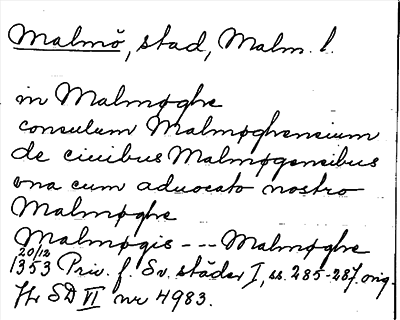 Malmö, stad, Malm. l.
in Malmøghe
consulum Malmøghensium
de ciuibus Malmøgensibus
vna cum aduocato nostro
Malmøghe
Malmøgis --- Malmøghe
20/12 1353 Priv. f. Sv. städer I, ss. 285-287. orig.
Tr SD VI nr 4983.